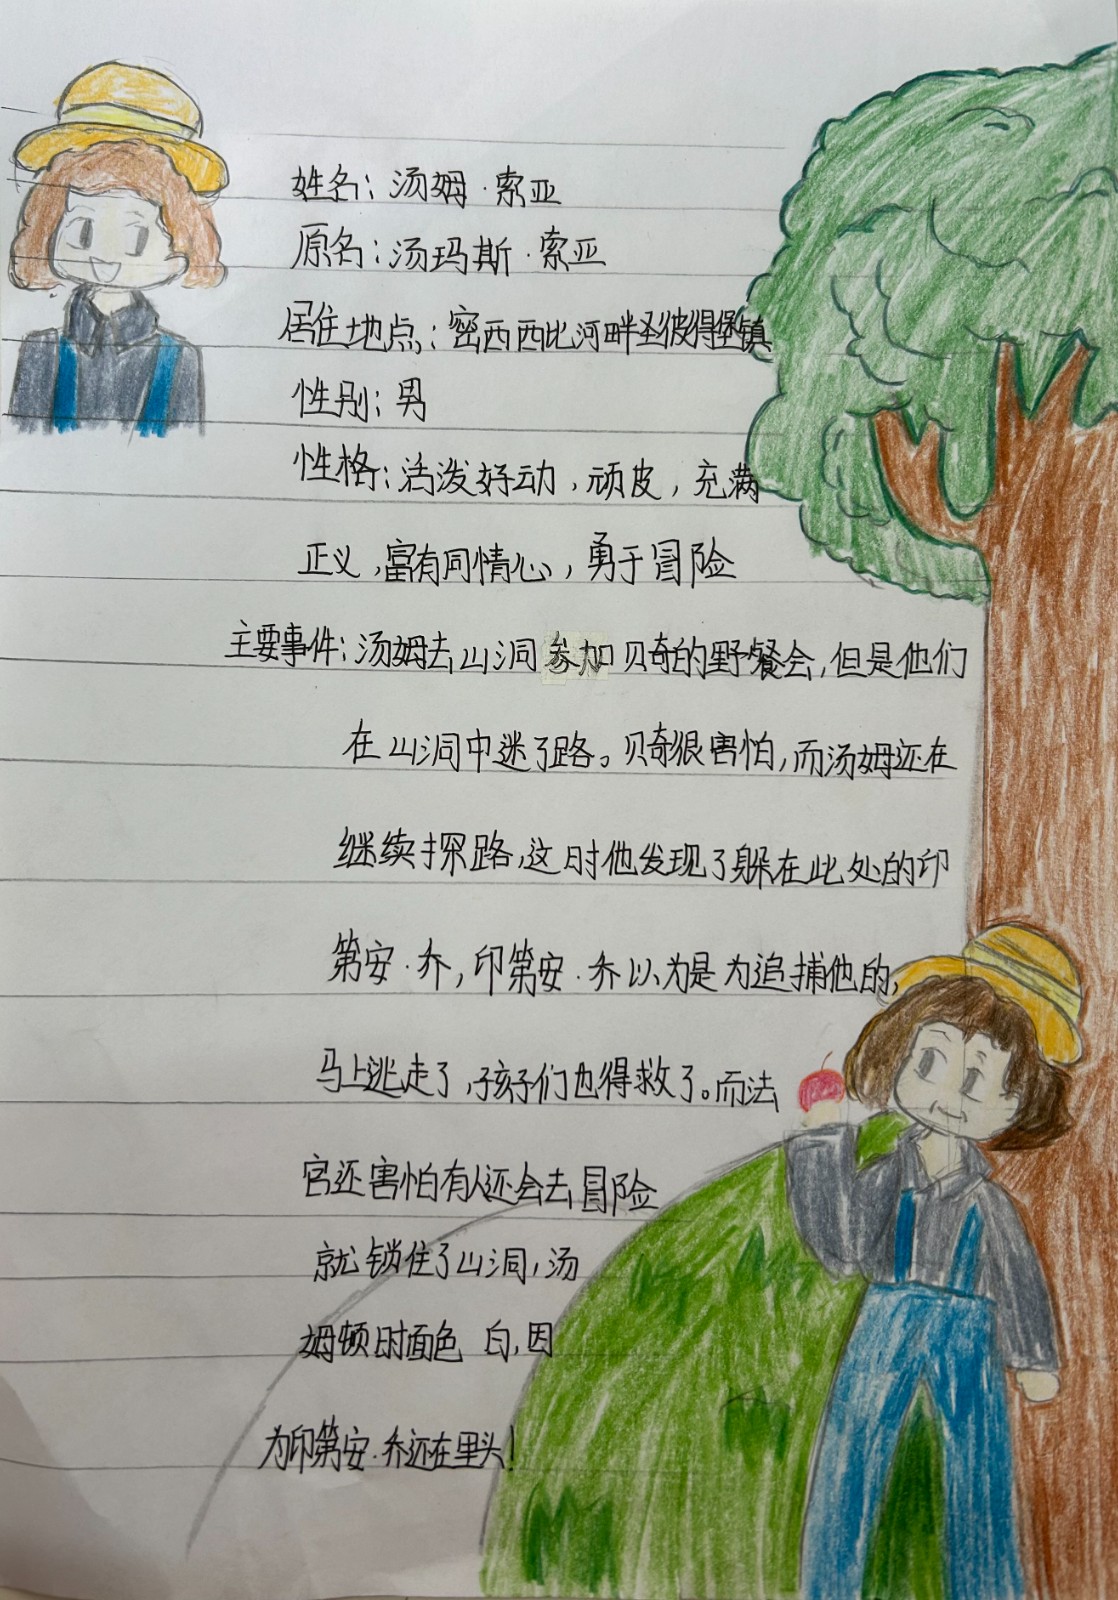 姓名：汤姆·索亚
原名：汤玛斯·索亚
居住地点：密西西比河畔圣彼得堡镇
性别：男
性格：活泼好动，顽皮，充满
正义，富有同情心，勇于冒险
主要事件：汤姆去山洞参加贝奇的野餐会，但是他们
在山洞中迷了路。贝奇很害怕，而汤姆还在
继续探路，这时他发现了躲在此处的印
第安·乔，印第安·乔以为是为追捕他的，
马上逃走了，孩子们也得救了。而法
官还害怕有人还会去冒险
就锁住了山洞，汤
姆顿时面色 白，因
为印第安·乔还在里头！